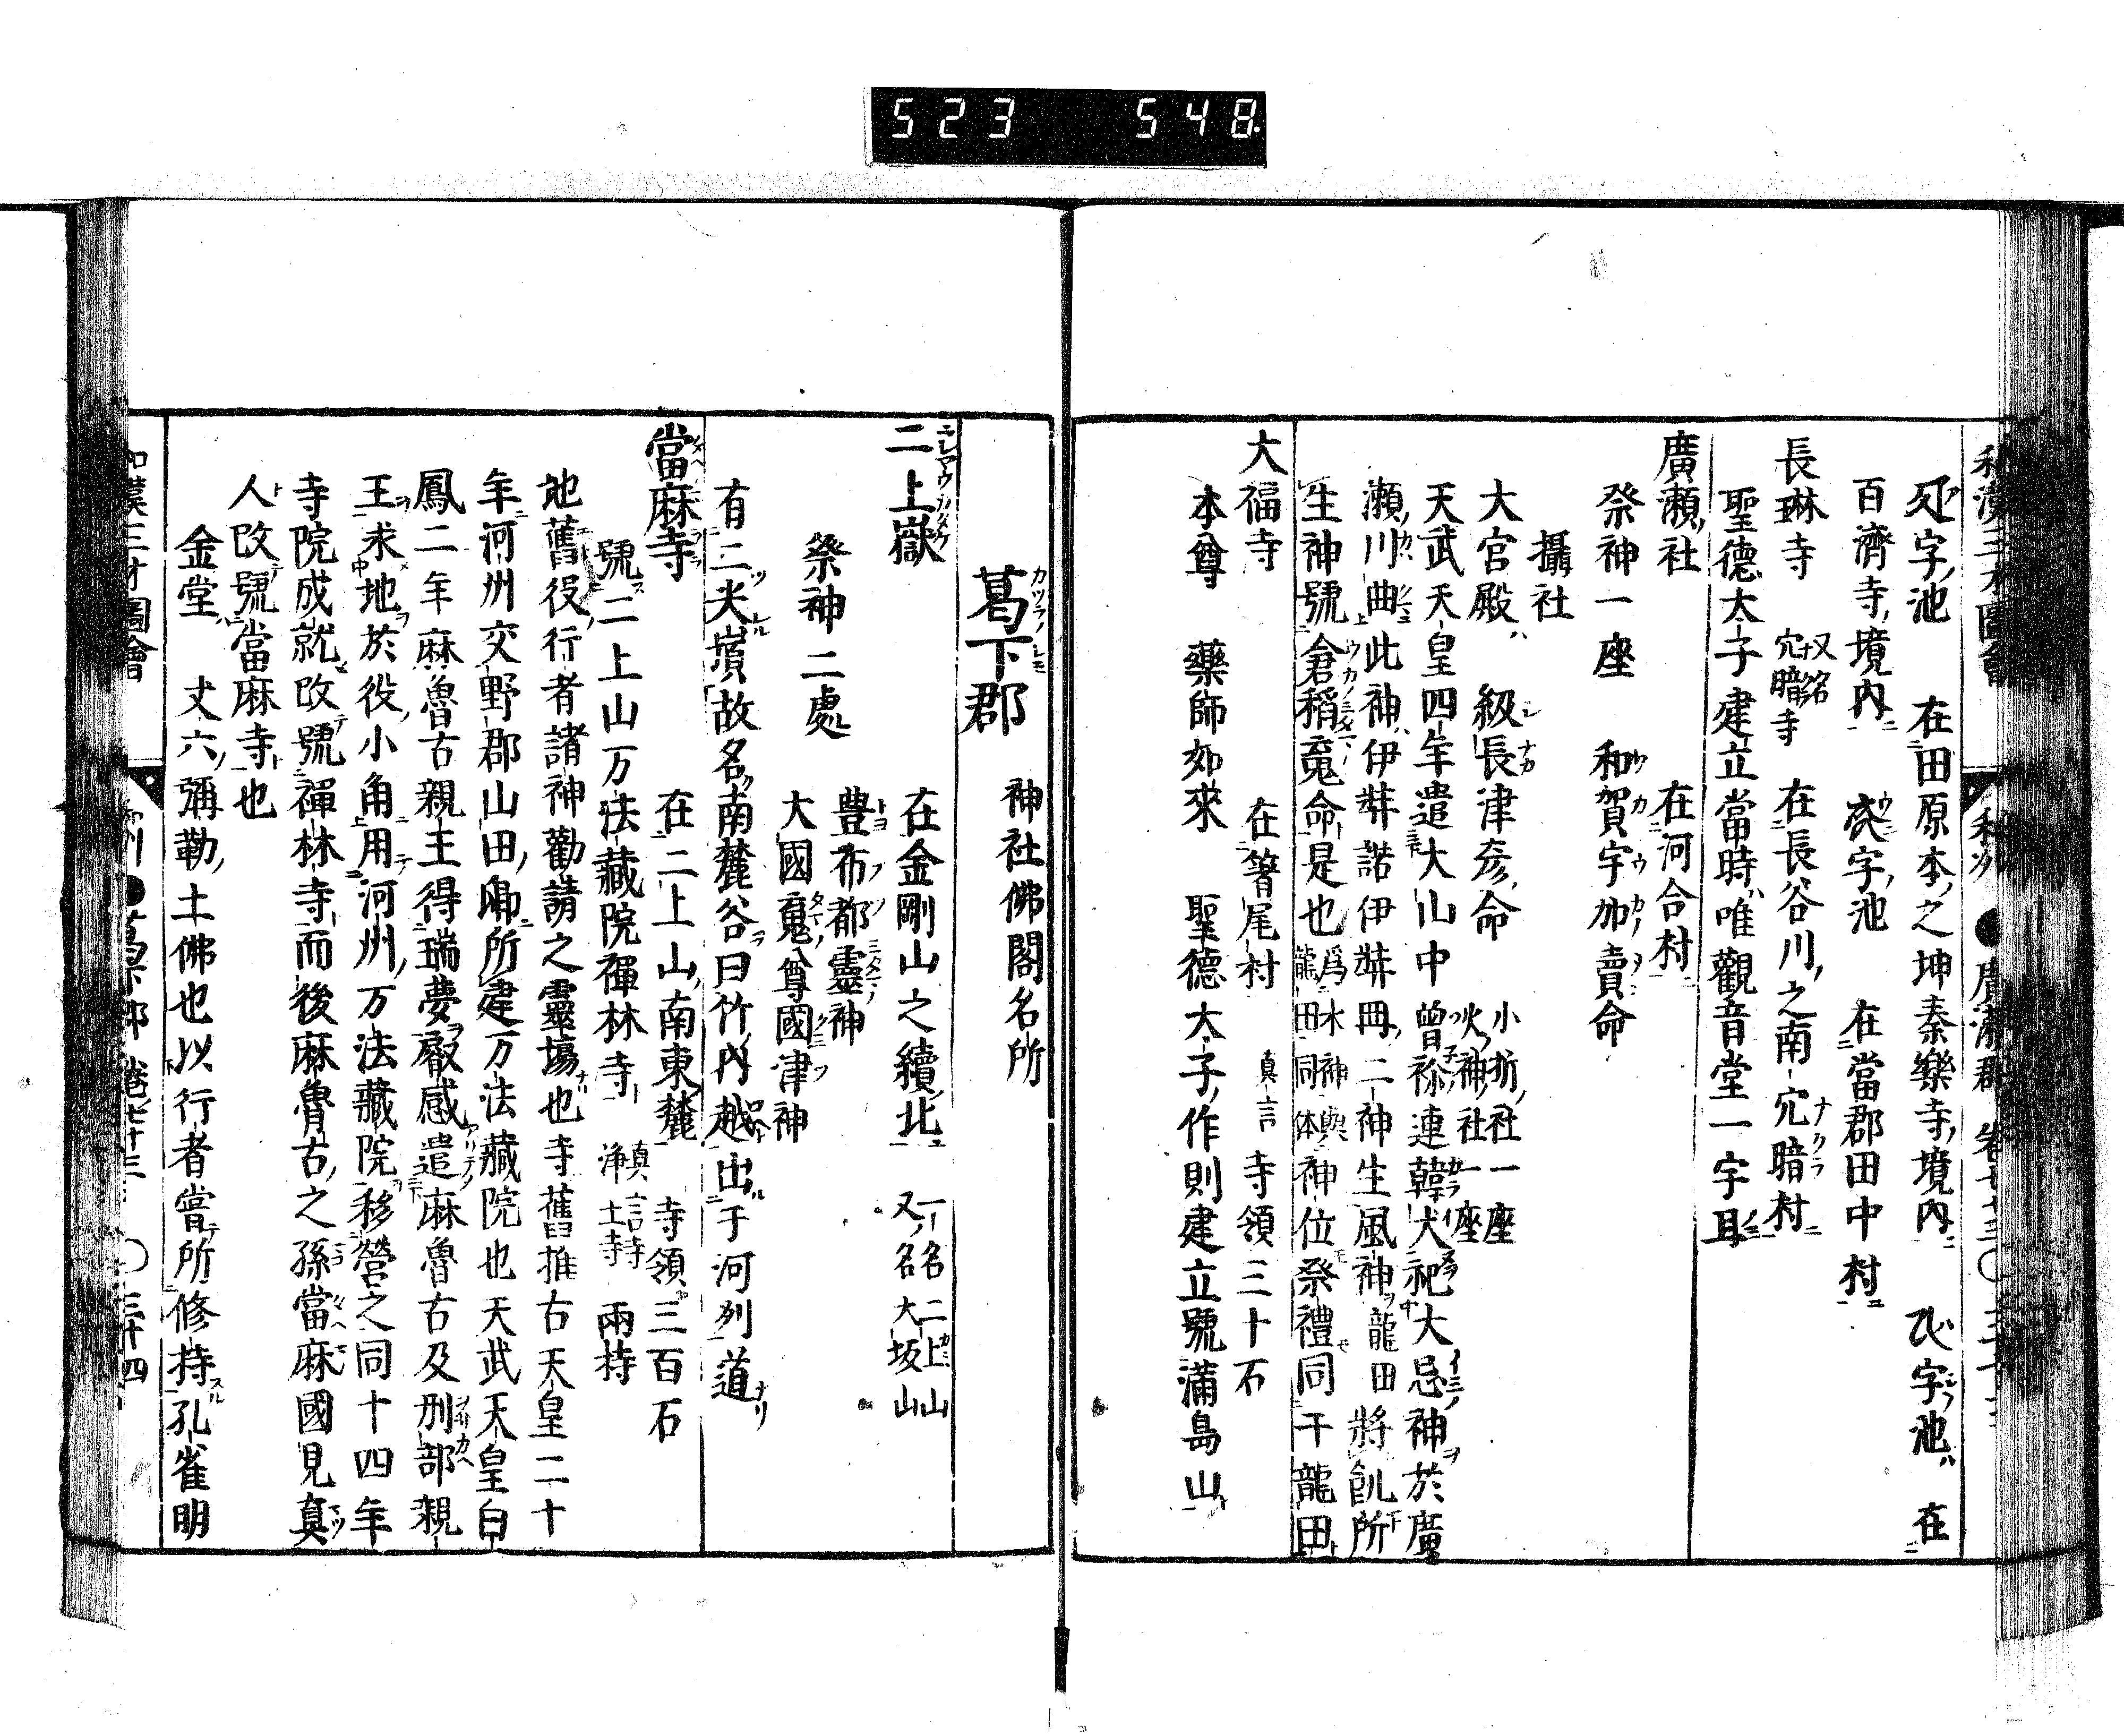 523 548
和漢三才圖會 和州 ●廣瀬郡 卷七十三
字池 在田原本之坤秦樂寺境内 字池 在
百濟寺境内 字池 在當郡田中村
長琳寺 又名穴暗寺 在長谷川之南穴暗村
聖德太子建立當時唯觀音堂一宇耳
廣瀬社 在河合村
祭神一座 和賀宇加賣命
攝社
大宮殿 級長津彦命 小折社一座 火神社一座
天武天皇四年遣大山中曾祢連韓犬祀大忌神於廣
瀬川曲此神伊弉諾伊弉冊二神生風神龍田將飢所
生神號倉稻䰟命是也 爲水神與龍田同体 神位祭禮同于龍田
大福寺 在箸尾村 真言 寺領三十石
本尊 藥師如來 聖德太子作則建立號蒲島山
葛下郡 神社佛閣名所
二上嶽 在金剛山之續北 一名二上山 又名大坂山
祭神二處 豊布都靈神
大國䰟尊國津神
有二尖嶺故名南麓谷曰竹内越出于河列道
當麻寺 在二上山南東麓 寺領三百石
號二上山万法藏院禪林寺 真言寺 浄土寺 兩持
地舊役行者諸神勸請之靈場也寺舊推古天皇二十
年河州交野郡山田郷所建万法藏院也天武天皇白
鳳二年麻魯古親王得瑞夢叡感遣麻魯古及刑部親
王求地於役小角用河州万法藏院移營之同十四年
寺院成就改號禪林寺而後麻魯古之孫當麻國見真
人改號當麻寺也
金堂 丈六彌勒土佛也以行者嘗所修持孔雀明
和漢三才圖會 和州 ●葛下郡 卷七十三 ○三十四